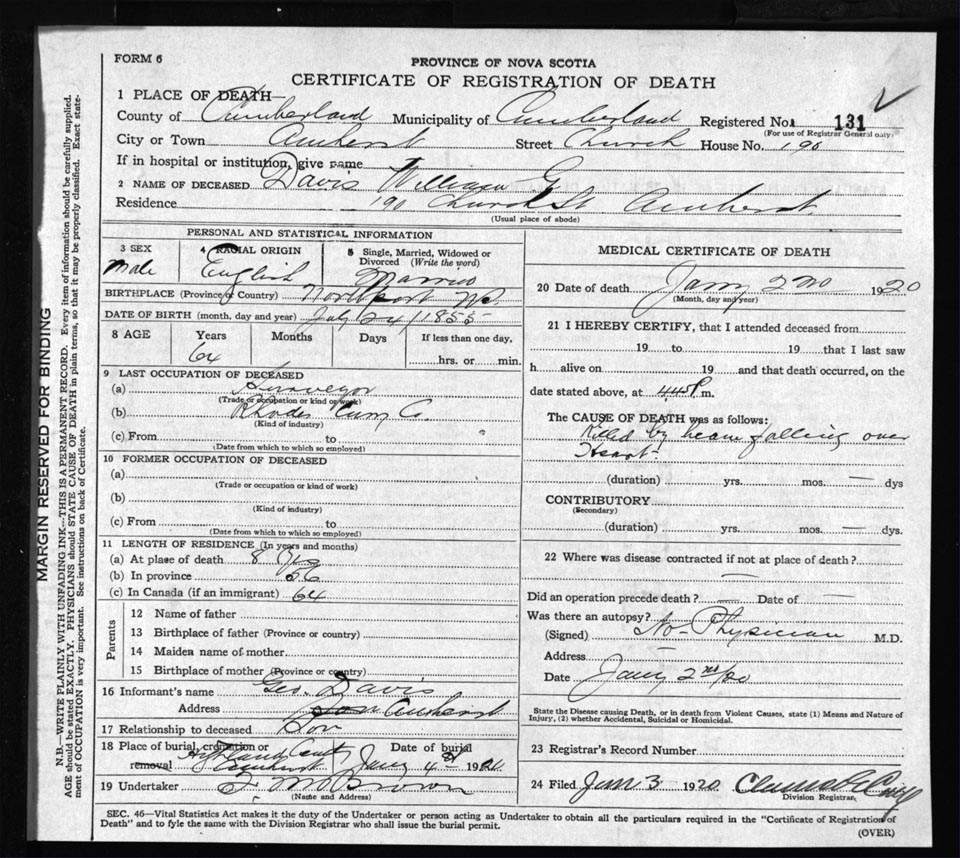 FORM 6
PROVINCE OF NOVA SCOTIA
CERTIFICATE OF REGISTRATION OF DEATH
1 PLACE OF DEATH—
County of Cumberland Municipality of Cumberland Registered No. 131
(For use of Registrar General only)
City or Town Amherst Street Church House No. 190
If in hospital or institution, give name
2 NAME OF DECEASED Davis William G
Residence 190 Church St Amherst
(Usual place of abode)
PERSONAL AND STATISTICAL INFORMATION
3 SEX Male
4 RACIAL ORIGIN English
5 Single, Married, Widowed or Divorced (Write the word) Married
BIRTHPLACE (Province or Country) Northport N.S.
DATE OF BIRTH (month, day and year) July 24/1855
8 AGE Years 64 Months Days If less than one day, hrs. or min.
9 LAST OCCUPATION OF DECEASED
(a)
(Trade or occupation or kind of work)
(b) Rhodes Curry Co.
(Kind of industry)
(c) From to
(Date from which to which so employed)
10 FORMER OCCUPATION OF DECEASED
(a)
(Trade or occupation or kind of work)
(b)
(Kind of industry)
(c) From to
(Date from which to which so employed)
11 LENGTH OF RESIDENCE (In years and months)
(a) At place of death 8
(b) In province
(c) In Canada (if an immigrant) 64
Parents
12 Name of father
13 Birthplace of father (Province or country)
14 Maiden name of mother
15 Birthplace of mother (Province or country)
16 Informant's name Geo. Davis
Address Amherst
17 Relationship to deceased Son
18 Place of burial, cremation or removal Highland Cemt Amherst Date of burial Jany 4 1920
19 Undertaker Brown
(Name and Address)
MEDICAL CERTIFICATE OF DEATH
20 Date of death Jany 2nd 1920
(Month, day and year)
21 I HEREBY CERTIFY, that I attended deceased from
19 to 19 that I last saw
h alive on 19 and that death occurred, on the
date stated above, at 4.45 P. m.
The CAUSE OF DEATH was as follows:
Killed by beam falling over
Heart-
(duration) yrs. mos. — dys
CONTRIBUTORY
(Secondary)
(duration) yrs. mos. — dys.
22 Where was disease contracted if not at place of death?
—
Did an operation precede death? — Date of —
Was there an autopsy? —
(Signed) No-Physician M.D.
Address
Date Jany 2nd/20
State the Disease causing Death, or in death from Violent Causes, state (1) Means and Nature of
Injury, (2) whether Accidental, Suicidal or Homicidal.
23 Registrar's Record Number
24 Filed Jan 3 1920
Division Registrar
SEC. 46—Vital Statistics Act makes it the duty of the Undertaker or person acting as Undertaker to obtain all the particulars required in the "Certificate of Registration of
Death" and to fyle the same with the Division Registrar who shall issue the burial permit.
(OVER)
MARGIN RESERVED FOR BINDING
N.B.—WRITE PLAINLY WITH UNFADING INK—THIS IS A PERMANENT RECORD. Every item of information should be carefully supplied.
AGE should be stated EXACTLY. PHYSICIANS should STATE CAUSE OF DEATH in plain terms, so that it may be properly classified. Exact state-
ment of OCCUPATION is very important. See instructions on back of Certificate.